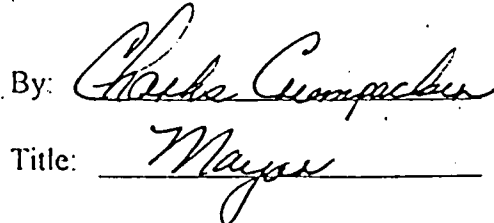 By: Charles Crumpacker
Title: Mayor